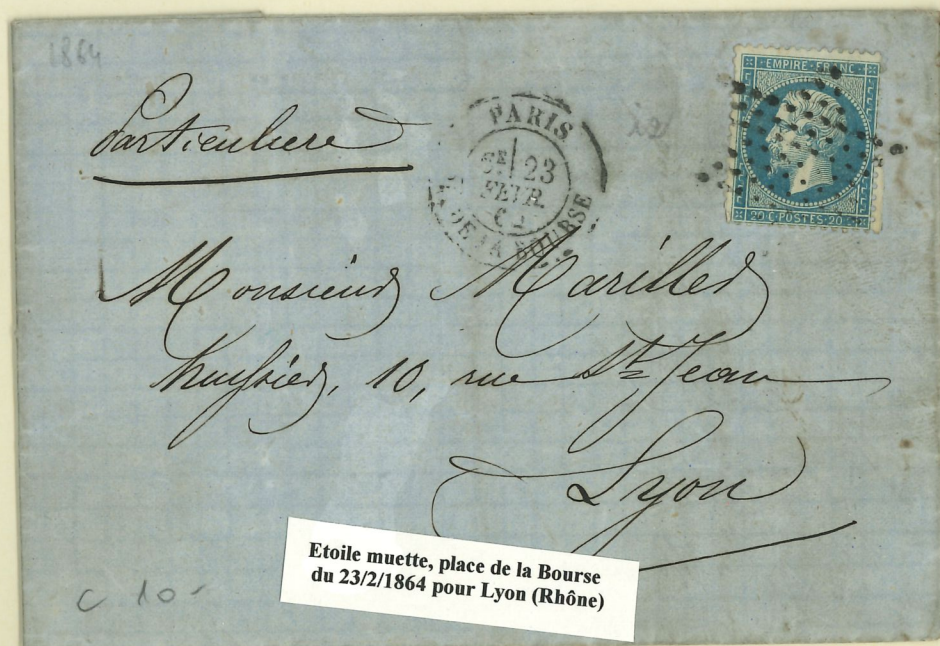 1864
Particuliere
PARIS
5E 23
FEVR
64
PL. DE LA BOURSE
22
EMPIRE · FRANC
20 C · POSTES · 20 C
Monsieur Marillet
huissier, 10, rue St Jean
Lyon
Etoile muette, place de la Bourse
du 23/2/1864 pour Lyon (Rhône)
C 10-